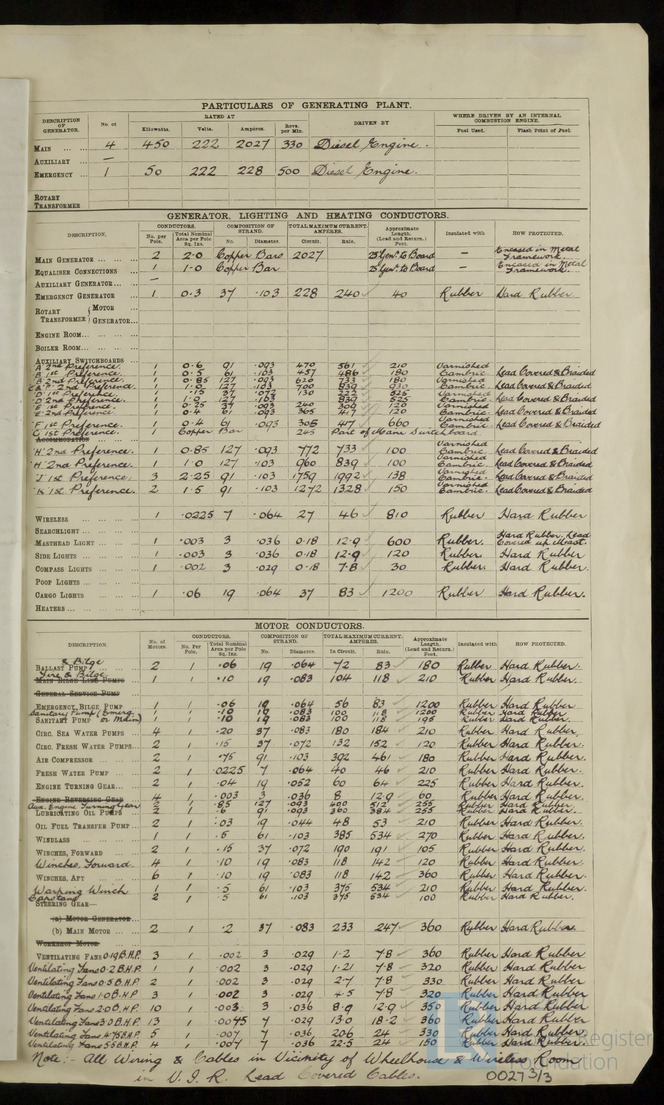 PARTICULARS OF GENERATING PLANT.
DESCRIPTION OF GENERATOR. No. of RATED AT DRIVEN BY WHERE DRIVEN BY AN INTERNAL COMBUSTION ENGINE.
Kilowatts. Volts. Amperes. Revs. per Min. Fuel Used. Flash Point of Fuel.
MAIN 4 450 222 2027 330 Diesel Engine.
AUXILIARY —
EMERGENCY 1 50 222 228 500 Diesel Engine.
ROTARY TRANSFORMER
GENERATOR, LIGHTING AND HEATING CONDUCTORS.
DESCRIPTION. CONDUCTORS. COMPOSITION OF STRAND. TOTAL MAXIMUM CURRENT. AMPERES. Approximate Length. (Lead and Return.) Feet. Insulated with HOW PROTECTED.
No. per Pole. Total Nominal Area per Pole Sq. Ins. No. Diameter. Circuit. Rule.
MAIN GENERATOR 2 2.0 Copper Bars 2027 25 Gen. to Board — Encased in Metal Framework.
EQUALISER CONNECTIONS 1 1.0 Copper Bar 25 Gen. to Board — Encased in Metal Framework.
AUXILIARY GENERATOR —
EMERGENCY GENERATOR 1 0.3 37 .103 228 240 40 Rubber Hard Rubber.
ROTARY TRANSFORMER { MOTOR
GENERATOR
ENGINE ROOM
BOILER ROOM
AUXILIARY SWITCHBOARDS
A 2nd Preference. 1 0.6 91 .093 470 561 210 Varnished
B 1st Preference. 1 0.5 61 .103 457 486 180 Cambric. Lead Covered & Braided
B 2nd Preference. 1 0.85 127 .093 626 733 180 Varnished
1 1.0 127 .103 700 839 930 Cambric. Lead Covered & Braided
E 1st Preference. 1 0.25 37 .093 240 120
E 2nd Preference. 1 0.4 61 .093 365 417 120 Cambric. Lead Covered & Braided
F 1st Preference. 1 0.4 61 .093 305 417 660 Lead Covered & Braided
G 1st Preference. 1 Copper Bar 245 Part of Main Switchboard
H 2nd Preference. 1 0.85 127 .093 772 733 100 Varnished Cambric. Lead Covered & Braided
H 2nd Preference. 1 1.0 127 .103 960 839 100 Varnished Cambric. Lead Covered & Braided
J 1st Preference. 3 2.25 91 .103 1759 1992 138 Varnished Cambric. Lead Covered & Braided
K 1st Preference. 2 1.5 91 .103 1272 1328 150 Varnished Cambric. Lead Covered & Braided
WIRELESS 1 .0225 7 .064 27 46 810 Rubber Hard Rubber
SEARCHLIGHT
MASTHEAD LIGHT 1 .003 3 .036 0.18 12.9 600 Rubber. Hard Rubber, Lead Covered up Mast.
SIDE LIGHTS 1 .003 3 .036 0.18 12.9 120 Rubber. Hard Rubber
COMPASS LIGHTS 1 .002 3 .029 0.18 7.8 30 Rubber. Hard Rubber
POOP LIGHTS
CARGO LIGHTS 1 .06 19 .064 37 83 1200 Rubber Hard Rubber.
HEATERS
MOTOR CONDUCTORS.
DESCRIPTION. No. of Motors. CONDUCTORS. COMPOSITION OF STRAND. TOTAL MAXIMUM CURRENT. AMPERES. Approximate Length (Lead and Return.) Feet. Insulated with HOW PROTECTED.
No. Per Pole. Total Nominal Area per Pole Sq. Ins. No. Diameter. In Circuit. Rule.
BALLAST PUMP & Bilge 2 1 .06 19 .064 72 83 180 Rubber Hard Rubber.
Fire & Bilge MAIN BILGE LINE PUMPS 1 1 .10 19 .083 104 118 210 Rubber Hard Rubber.
GENERAL SERVICE PUMP
EMERGENCY BILGE PUMP 1 1 .06 19 .064 56 83 1200 Rubber Hard Rubber.
Sanitary Pump (Emerg. 1 1 .10 19 .083 100 118 1200 Rubber Hard Rubber
SANITARY PUMP or Main) 1 1 .10 19 .083 100 118 195 Rubber Hard Rubber.
CIRC. SEA WATER PUMPS 4 1 .20 37 .083 180 184 210 Rubber Hard Rubber.
CIRC. FRESH WATER PUMPS 2 1 .15 37 .072 132 152 120 Rubber Hard Rubber.
AIR COMPRESSOR 2 1 .75 91 .103 392 461 180 Rubber Hard Rubber.
FRESH WATER PUMP 2 1 .0225 7 .064 40 46 210 Rubber Hard Rubber.
ENGINE TURNING GEAR 2 1 .04 19 .052 60 64 225 Rubber Hard Rubber.
ENGINE REVERSING GEAR
Aux. Engine Turning Gear 4 1 .003 3 .036 8 12.9 60 Rubber Hard Rubber.
LUBRICATING OIL PUMPS 2 1 .85 127 .093 400 512 255 Rubber Hard Rubber.
2 1 .6 91 .093 300 384 255 Rubber Hard Rubber.
OIL FUEL TRANSFER PUMP 2 1 .03 19 .044 48 53 210 Rubber Hard Rubber.
WINDLASS 1 1 .5 61 .103 385 534 270 Rubber Hard Rubber.
WINCHES, FORWARD 2 1 .15 37 .072 190 191 105 Rubber Hard Rubber.
Winches, Forward 4 1 .10 19 .083 118 142 120 Rubber Hard Rubber.
WINCHES, AFT 6 1 .10 19 .083 118 142 360 Rubber Hard Rubber.
Warping Winch 1 1 .5 61 .103 375 534 210 Rubber Hard Rubber.
Capstans 2 1 .5 61 .103 375 534 100 Rubber Hard Rubber.
STEERING GEAR—
(a) MOTOR GENERATOR
(b) MAIN MOTOR 2 1 .2 37 .083 233 247 360 Rubber Hard Rubber.
WORKSHOP MOTOR
VENTILATING FANS 0.19 B.H.P. 3 1 .002 3 .029 1.2 7.8 360 Rubber Hard Rubber.
Ventilating Fans 0.2 B.H.P. 1 1 .002 3 .029 1.21 7.8 320 Rubber Hard Rubber.
Ventilating Fans 0.5 B.H.P. 2 1 .002 3 .029 2.7 7.8 330 Rubber Hard Rubber.
Ventilating Fans 1.0 B.H.P. 3 1 .002 3 .029 4.5 7.8 320 Rubber Hard Rubber.
Ventilating Fans 2.0 B.H.P. 10 1 .003 3 .036 8.9 12.9 350 Rubber Hard Rubber.
Ventilating Fans 3.0 B.H.P. 13 1 .0045 7 .029 13.0 18.2 360 Rubber Hard Rubber.
Ventilating Fans 4.75 B.H.P. 5 1 .007 7 .036 20.6 24 330 Rubber Hard Rubber.
Ventilating Fans 5.5 B.H.P. 4 1 .007 7 .036 22.5 24 150 Rubber Hard Rubber.
Note:- All Wiring & Cables in Vicinity of Wheelhouse & Wireless Room
in V.I.R. Lead Covered Cables.
0027 3/3
Register
Foundation